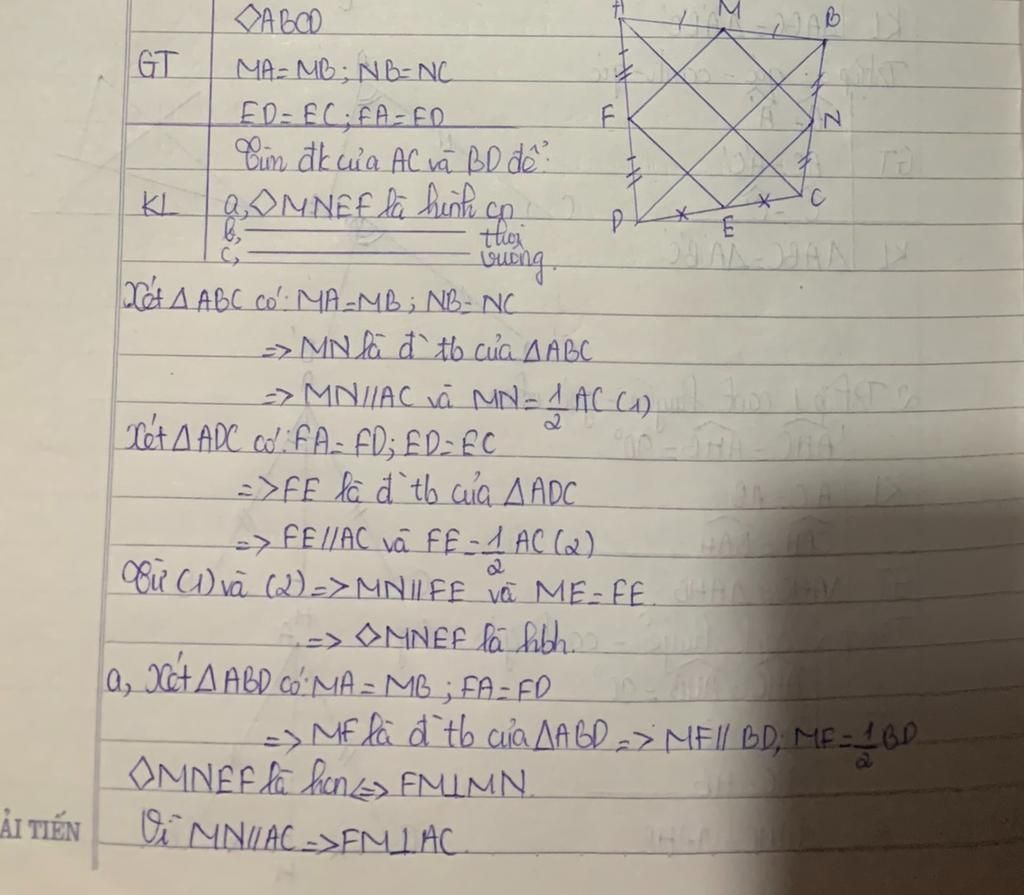 ◇ABCD
GT
MA=MB; NB=NC
ED=EC; FA=FD
Tìm đk của AC và BD để:
KL
a, ◇MNEF là hình cn
b, ——— thoi
c, ——— vuông.
A M B
F N
D E C
Xét ΔABC có: MA=MB; NB=NC
=> MN là đ` tb của ΔABC
=> MN//AC và MN=1/2 AC (1)
Xét ΔADC có: FA=FD; ED=EC
=> FE là đ` tb của ΔADC
=> FE//AC và FE=1/2 AC (2)
Từ (1) và (2) => MN//FE và ME=FE.
=> ◇MNEF là hbh.
a, Xét ΔABD có: MA=MB; FA=FD
=> MF là đ` tb của ΔABD => MF//BD; MF=1/2 BD
◇MNEF là hcn <=> FM⊥MN.
Vì MN//AC => FM⊥AC.
ẢI TIẾN